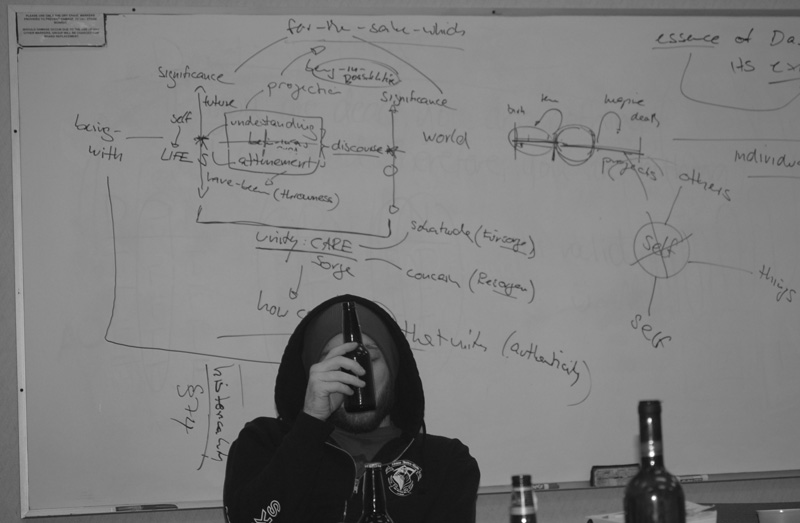 for-the-sake-which
essence of Da
its ex
being-in-
Significance
projection
Significance
future
self
understanding
being-
with
LIFE
discourse
world
attunement
have-been (thrownness)
birth
death
projects
individua
others
self
things
self
unity: CARE
Sorge
solicitude (Fürsorge)
concern (Besorgen)
how c
that unity (authenticity)
historicality
§74